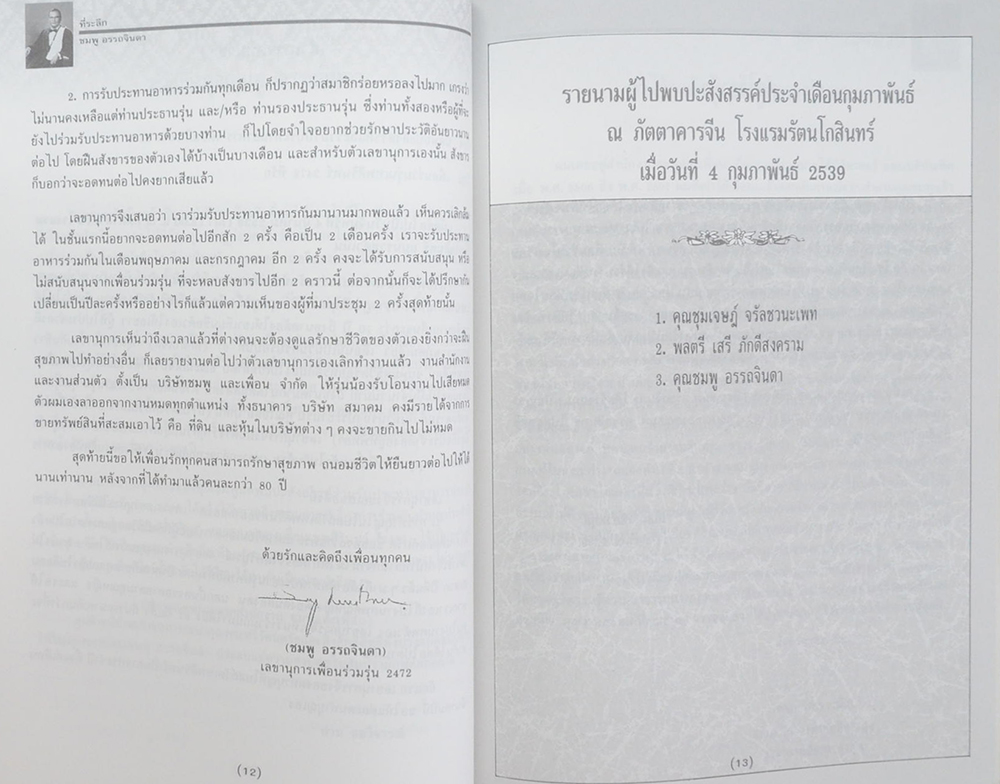 ที่ระลึก
ชมพู อรรถจินดา
2. การรับประทานอาหารร่วมกันทุกเดือน ก็ปรากฏว่าสมาชิกร่อยหรอลงไปมาก เกรงว่า
ไม่นานคงเหลือแต่ท่านประธานรุ่น และ/หรือ ท่านรองประธานรุ่น ซึ่งท่านทั้งสองหรือผู้ที่จะ
ยังไปร่วมรับประทานอาหารด้วยบางท่าน ก็ไปโดยจำใจอยากช่วยรักษาประวัติอันยาวนาน
ต่อไป โดยฝืนสังขารของตัวเองได้บ้างเป็นบางเดือน และสำหรับตัวเลขานุการเองนั้น สังขาร
ก็บอกว่าจะอดทนต่อไปคงยากเสียแล้ว
เลขานุการจึงเสนอว่า เราร่วมรับประทานอาหารกันมานานมากพอแล้ว เห็นควรเลิกล้ม
ได้ ในชั้นแรกนี้อยากจะอดทนต่อไปอีกสัก 2 ครั้ง คือเป็น 2 เดือนครั้ง เราจะรับประทาน
อาหารร่วมกันในเดือนพฤษภาคม และกรกฎาคม อีก 2 ครั้ง คงจะได้รับการสนับสนุน หรือ
ไม่สนับสนุนจากเพื่อนร่วมรุ่น ที่จะหลบสังขารไปอีก 2 คราวนี้ ต่อจากนั้นก็จะได้ปรึกษากัน
เปลี่ยนเป็นปีละครั้งหรืออย่างไรก็แล้วแต่ความเห็นของผู้ที่มาประชุม 2 ครั้งสุดท้ายนั้น
เลขานุการเห็นว่าถึงเวลาแล้วที่ต่างคนจะต้องดูแลรักษาชีวิตของตัวเองยิ่งกว่าจะฝืน
สุขภาพไปทำอย่างอื่น ก็เลยรายงานต่อไปว่าตัวเลขานุการเองเลิกทำงานแล้ว งานสำนักงาน
และงานส่วนตัว ตั้งเป็น บริษัทชมพู และเพื่อน จำกัด ให้รุ่นน้องรับโอนงานไปเสียหมด
ตัวผมเองลาออกจากงานหมดทุกตำแหน่ง ทั้งธนาคาร บริษัท สมาคม คงมีรายได้จากการ
ขายทรัพย์สินที่สะสมเอาไว้ คือ ที่ดิน และหุ้นในบริษัทต่าง ๆ คงจะขายกินไปไม่หมด
สุดท้ายนี้ขอให้เพื่อนรักทุกคนสามารถรักษาสุขภาพ ถนอมชีวิตให้ยืนยาวต่อไปให้ได้
นานเท่านาน หลังจากที่ได้ทำมาแล้วคนละกว่า 80 ปี
ด้วยรักและคิดถึงเพื่อนทุกคน
(ชมพู อรรถจินดา)
เลขานุการเพื่อนร่วมรุ่น 2472
(12)
รายนามผู้ไปพบปะสังสรรค์ประจำเดือนกุมภาพันธ์
ณ ภัตตาคารจีน โรงแรมรัตนโกสินทร์
เมื่อวันที่ 4 กุมภาพันธ์ 2539
1. คุณชุมเจษฎ์ จรัลชวนะเพท
2. พลตรี เสรี ภักดีสงคราม
3. คุณชมพู อรรถจินดา
(13)